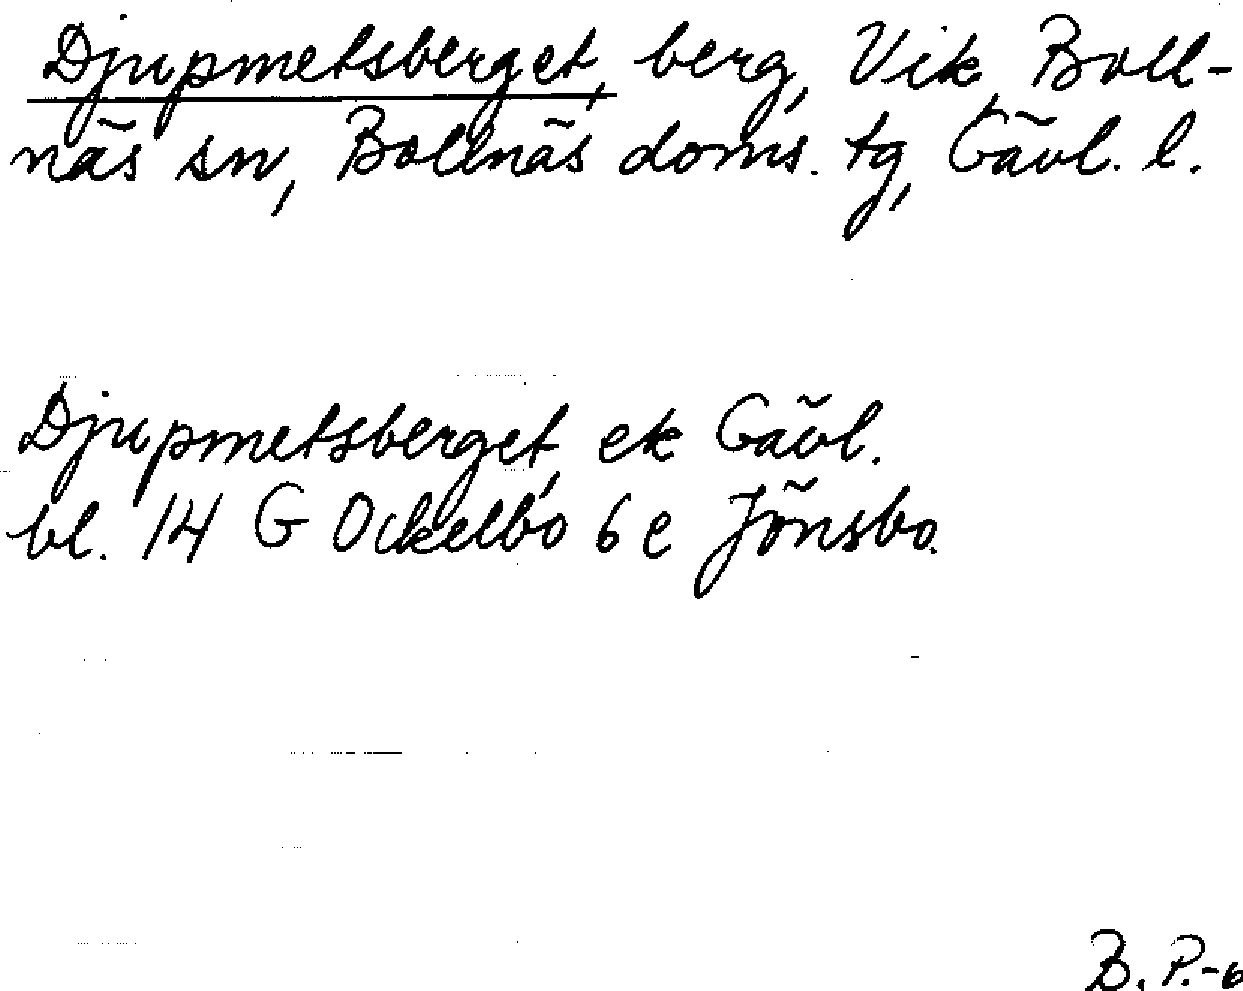 Djupmetsberget, berg, Vik, Boll-
näs sn, Bollnäs doms. tg, Gävl. l.
Djupmetsberget, ek Gävl.
bl. 14 G Ockelbo 6 e Jönsbo.
B. P.-6